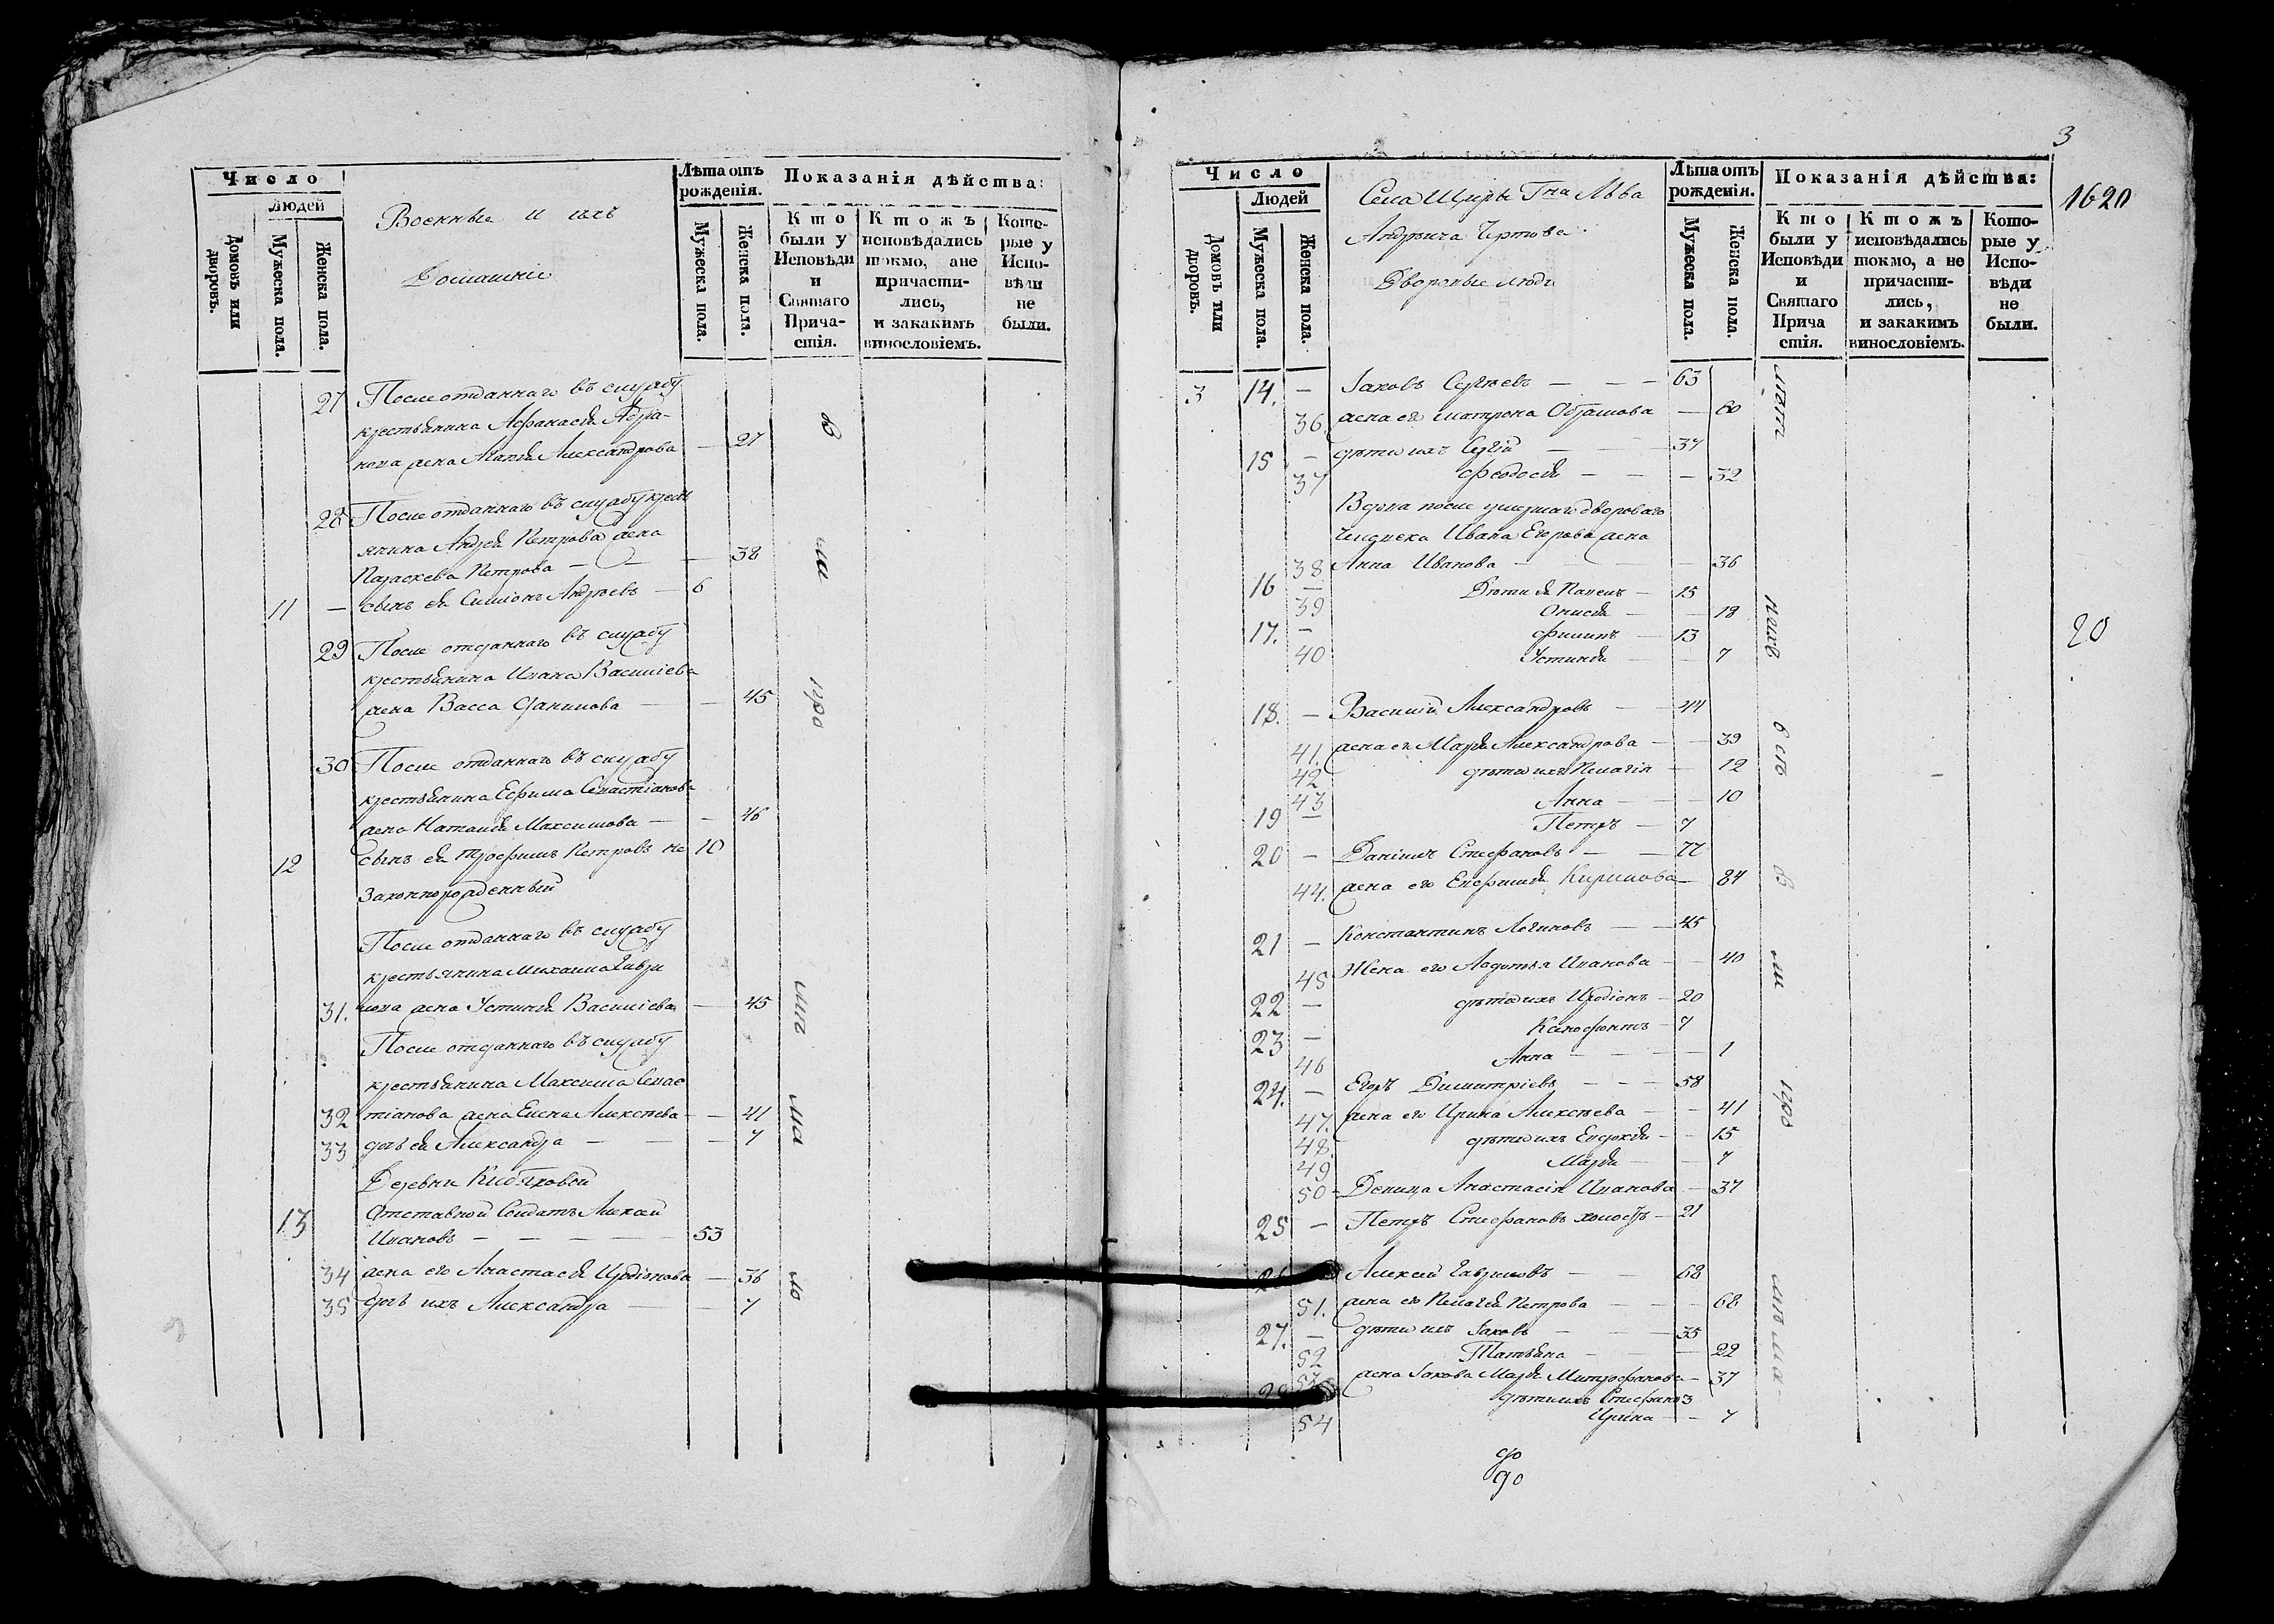 Число
Людей
Домовъ или дворовъ.
Мужеска пола.
Женска пола.
Военные и ихъ
Домашніе
Лѣта отъ рожденія.
Мужеска пола.
Женска пола.
Показанія дѣйства:
Кто были у Исповѣди и Святаго Прича-стія.
Ктожъ исповѣдались токмо, а не причасти-лись, и закакимъ винословіемъ.
Кото-рые у Испо-вѣди не были.
27 После отданнаго въ службу
крестьянина Афанасія
жена Агапія Александрова — 27
28 После отданнаго въ службу кресть
янина Андрея Петрова жена
Параскева Петрова — — 38
11 — сынъ ея Симіонъ Андреевъ — 6
29 После отданнаго въ службу
крестьянина Ивана Василіева
жена Васса Данилова — — 45
30 После отданнаго въ службу
крестьянина Ефима Севастіанова
жена Наталія Максимова — — 46
12 сынъ ея Трофимъ Петровъ не 10
законнорожденный
После отданнаго въ службу
крестьянина Михаила Гаври
31. лова жена Устинія Василіева — 45
После отданнаго въ службу
крестьянина Максима Севас
32 тіанова жена Елена Алексѣева — — 41
33 дочь ея Александра — — — 7
Деревни
13 Отставной Солдатъ Алексей
Ивановъ — — — — 53
34 жена его Анастасія Иродіонова — 36
35 дочь ихъ Александра — — 7
3
1620
20
Число
Людей
Домовъ или дворовъ.
Мужеска пола.
Женска пола.
Села Щигры Гна Льва
Андреича Чертова.
Дворовые люди
Лѣта отъ рожденія.
Мужеска пола.
Женска пола.
Показанія дѣйства:
Кто были у Исповѣди и Святаго Прича стія.
Ктожъ исповѣдались токмо, а не причасти-лись, и закакимъ винословіемъ.
Кото-рые у Испо-вѣди не были.
3 14. — Іаковъ Сергѣевъ — — — 63
36. жена его Матрона — 60
15 — дѣти их Сергій — — 37
37 Феодосія — — — 32
Вдова после умершаго двороваго
человека Ивана Егорова жена
38 Анна Иванова — — — 36
16 — Дѣти ея Павелъ — 15
39 Онисія — — 18
17. — Филипъ — 13
40 Устинія — — 7
18. — Василій Александровъ — — 44
41. жена его Марія Александрова — — 39
42 дѣти ихъ Пелагія — 12
43 Анна — — — 10
19 — Петръ — 7
20 — Даніилъ Стефановъ — — 77
44. жена его Евфимія Кирилова — 84
21 — Константинъ Логиновъ — — 45
45 Жена его Авдотья Иванова — — 40
22 — дѣти ихъ Иродіонъ — 20
23 — Ксенофонтъ — 7
46 Анна — — — — 1
24. — Егоръ Димитріевъ — — — 58
47. жена его Ирина Алексѣева — — 41
48. дѣти ихъ Евдокія — — 15
49 Марія — — 7
50 — Девица Анастасія Иванова — 37
25 — Петръ Стефановъ холостъ — 21
26 Алексей Гавриловъ — — 68
51. жена его Пелагія Петрова — — — 68
27. — дѣти ихъ Іаковъ — — 35
52 Татьяна — — — 22
53 жена Іакова Марія Митрофанова — 37
28 дѣти ихъ Стефанъ 3
54 Ирина — — 7